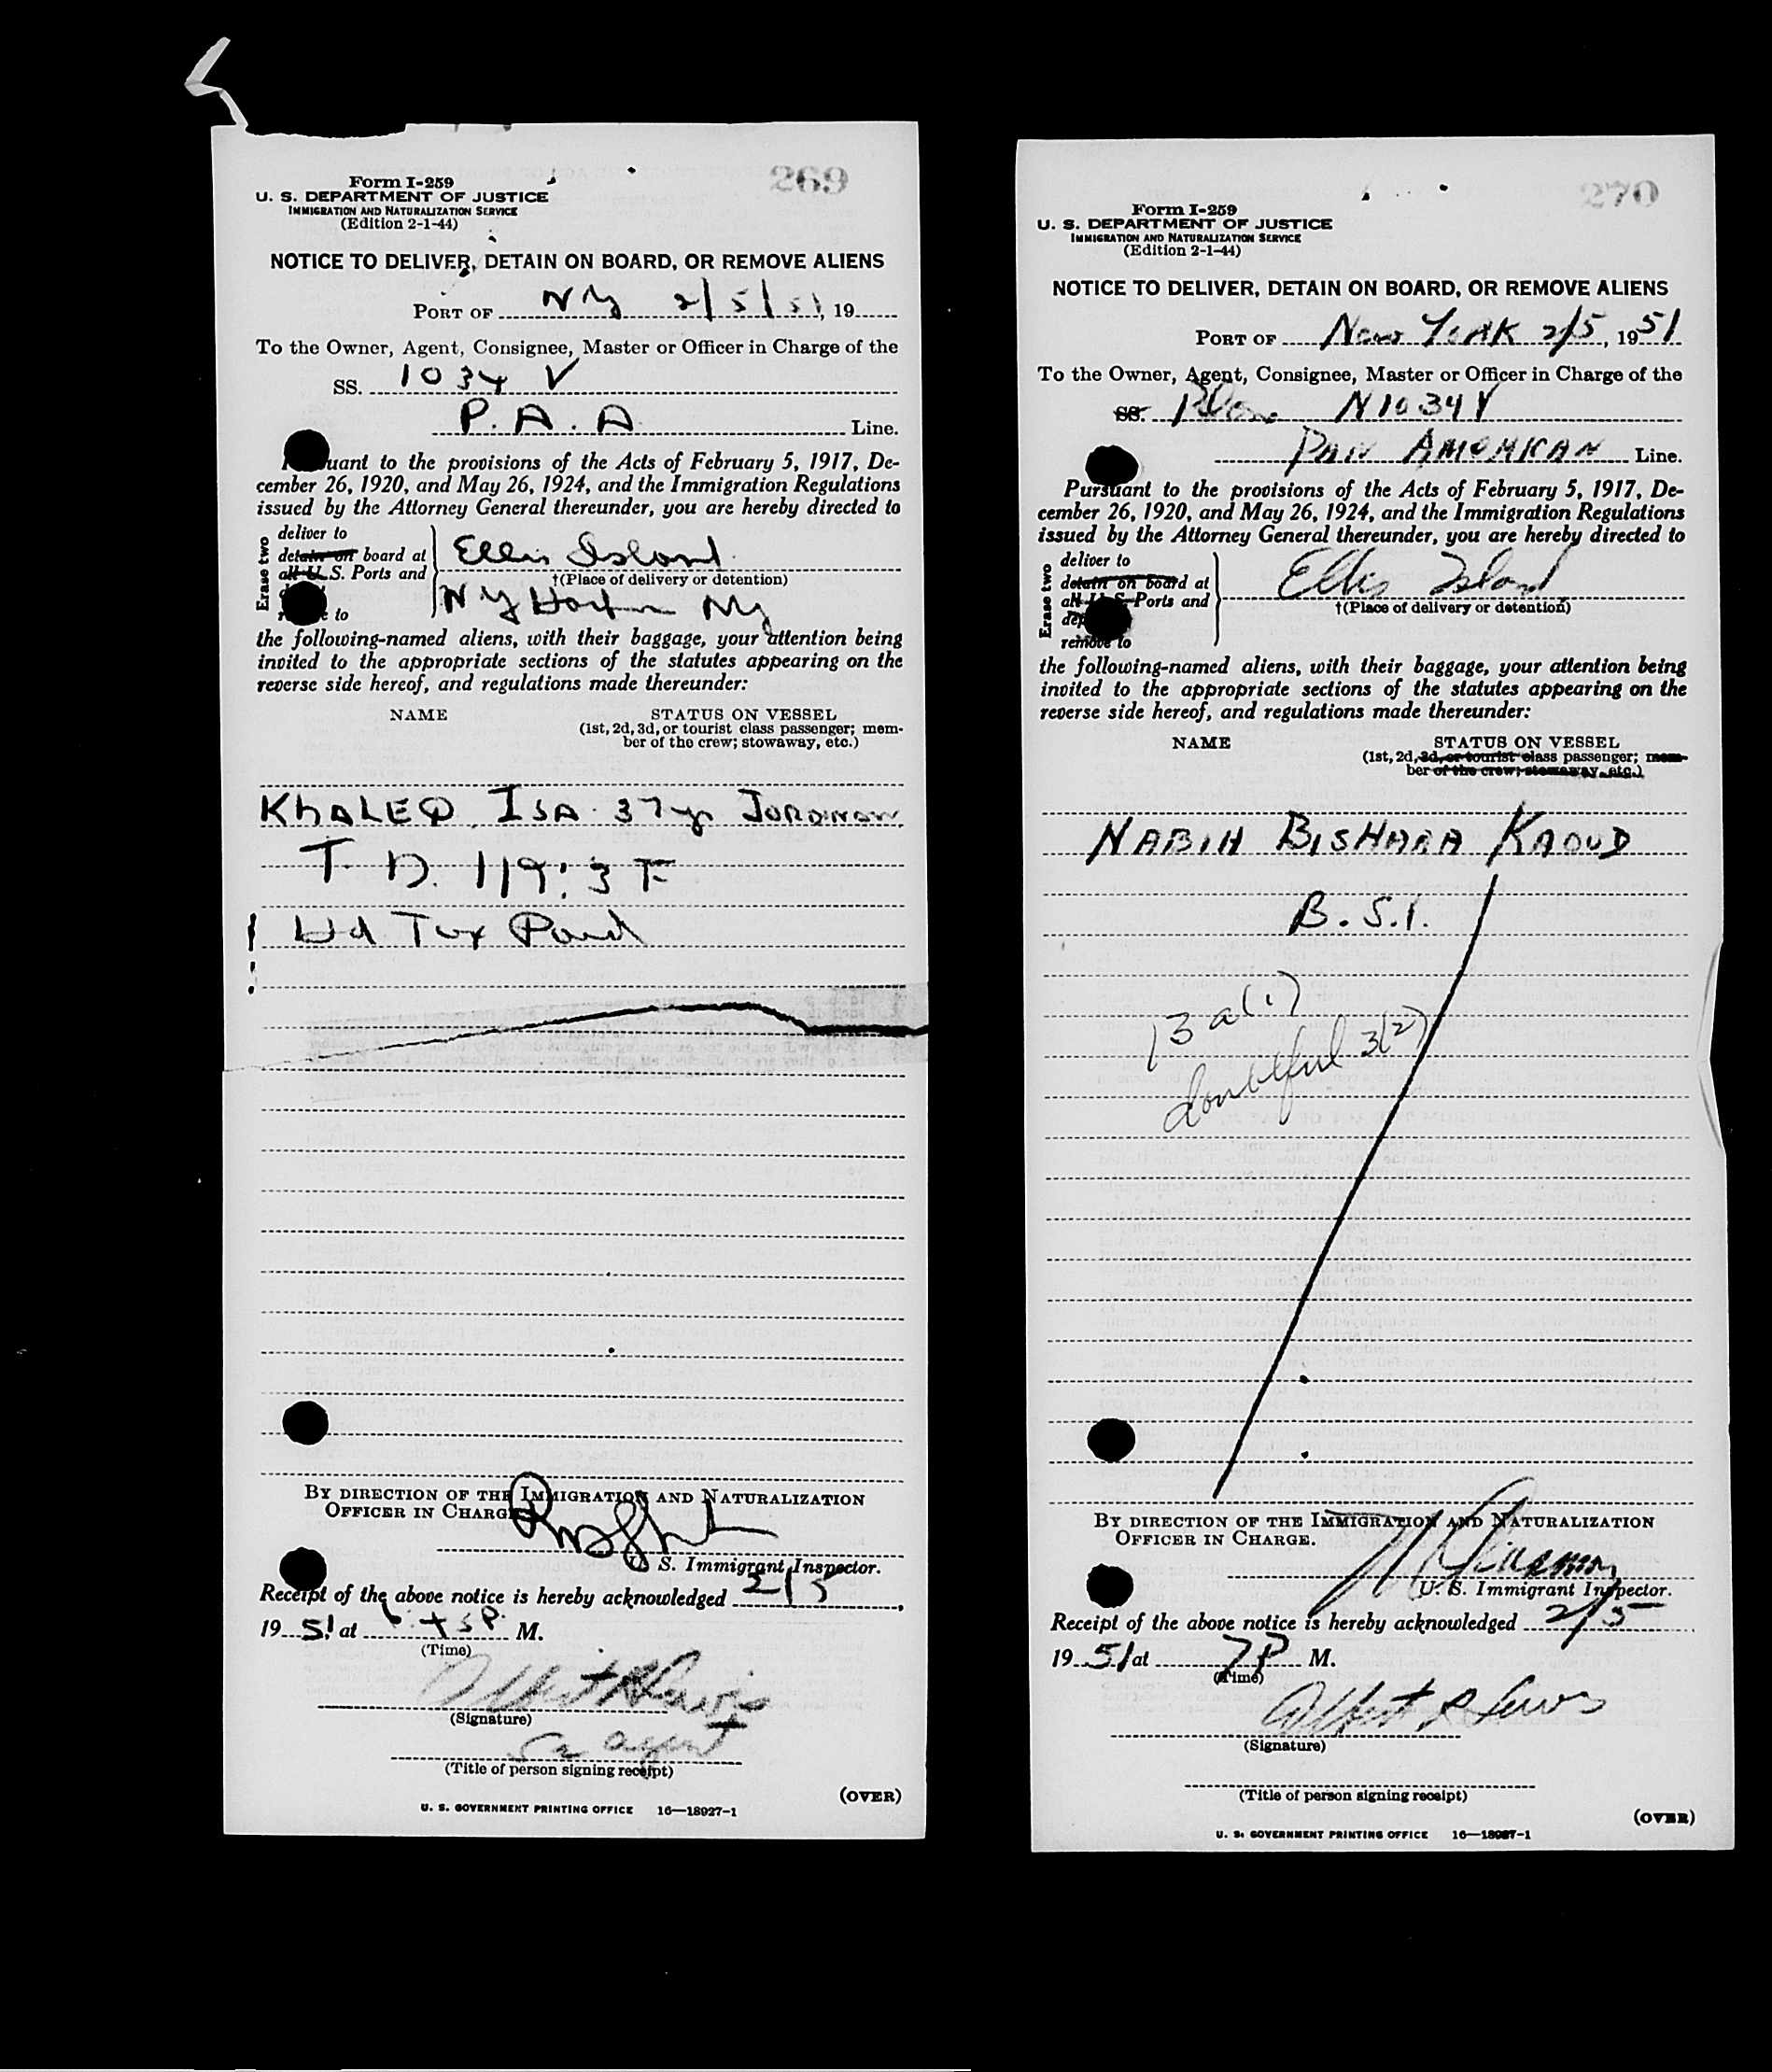 269
Form I-259
U. S. DEPARTMENT OF JUSTICE
IMMIGRATION AND NATURALIZATION SERVICE
(Edition 2-1-44)
NOTICE TO DELIVER, DETAIN ON BOARD, OR REMOVE ALIENS
PORT OF NY 2/5/51, 19
To the Owner, Agent, Consignee, Master or Officer in Charge of the
SS. 1034 V
P. A. A Line.
uant to the provisions of the Acts of February 5, 1917, De-
cember 26, 1920, and May 26, 1924, and the Immigration Regulations
issued by the Attorney General thereunder, you are hereby directed to
Erase two
deliver to
detain on board at
all U. S. Ports and
to
Ellis Island
†(Place of delivery or detention)
NY Harbor NY
the following-named aliens, with their baggage, your attention being
invited to the appropriate sections of the statutes appearing on the
reverse side hereof, and regulations made thereunder:
NAME STATUS ON VESSEL
(1st, 2d, 3d, or tourist class passenger; mem-
ber of the crew; stowaway, etc.)
KHALED ISA 37 yr JORDANIAN
T. D.
Hd Tax Paid
BY DIRECTION OF THE IMMIGRATION AND NATURALIZATION
OFFICER IN CHARGE
U. S. Immigrant Inspector.
Receipt of the above notice is hereby acknowledged 2/5,
19 51 at P. M.
(Time)
Albert R Lewis
(Signature)
agent
(Title of person signing receipt)
(OVER)
U. S. GOVERNMENT PRINTING OFFICE 16—18927-1
270
Form I-259
U. S. DEPARTMENT OF JUSTICE
IMMIGRATION AND NATURALIZATION SERVICE
(Edition 2-1-44)
NOTICE TO DELIVER, DETAIN ON BOARD, OR REMOVE ALIENS
PORT OF New York 2/5, 1951
To the Owner, Agent, Consignee, Master or Officer in Charge of the
SS. Plane N1034V
PAN AMERICAN Line.
Pursuant to the provisions of the Acts of February 5, 1917, De-
cember 26, 1920, and May 26, 1924, and the Immigration Regulations
issued by the Attorney General thereunder, you are hereby directed to
Erase two
deliver to
detain on board at
all U. S. Ports and
remove to
Ellis Island
†(Place of delivery or detention)
the following-named aliens, with their baggage, your attention being
invited to the appropriate sections of the statutes appearing on the
reverse side hereof, and regulations made thereunder:
NAME STATUS ON VESSEL
(1st, 2d, 3d, or tourist class passenger; mem-
ber of the crew; stowaway, etc.)
NABIH BISHARA KAOUD
B. S. I.
13 a(1)
doubtful 3(2)
BY DIRECTION OF THE IMMIGRATION AND NATURALIZATION
OFFICER IN CHARGE.
U. S. Immigrant Inspector.
Receipt of the above notice is hereby acknowledged 2/5
19 51 at 7 P M.
(Time)
Albert R Lewis
(Signature)
(Title of person signing receipt)
(OVER)
U. S. GOVERNMENT PRINTING OFFICE 16—18927-1